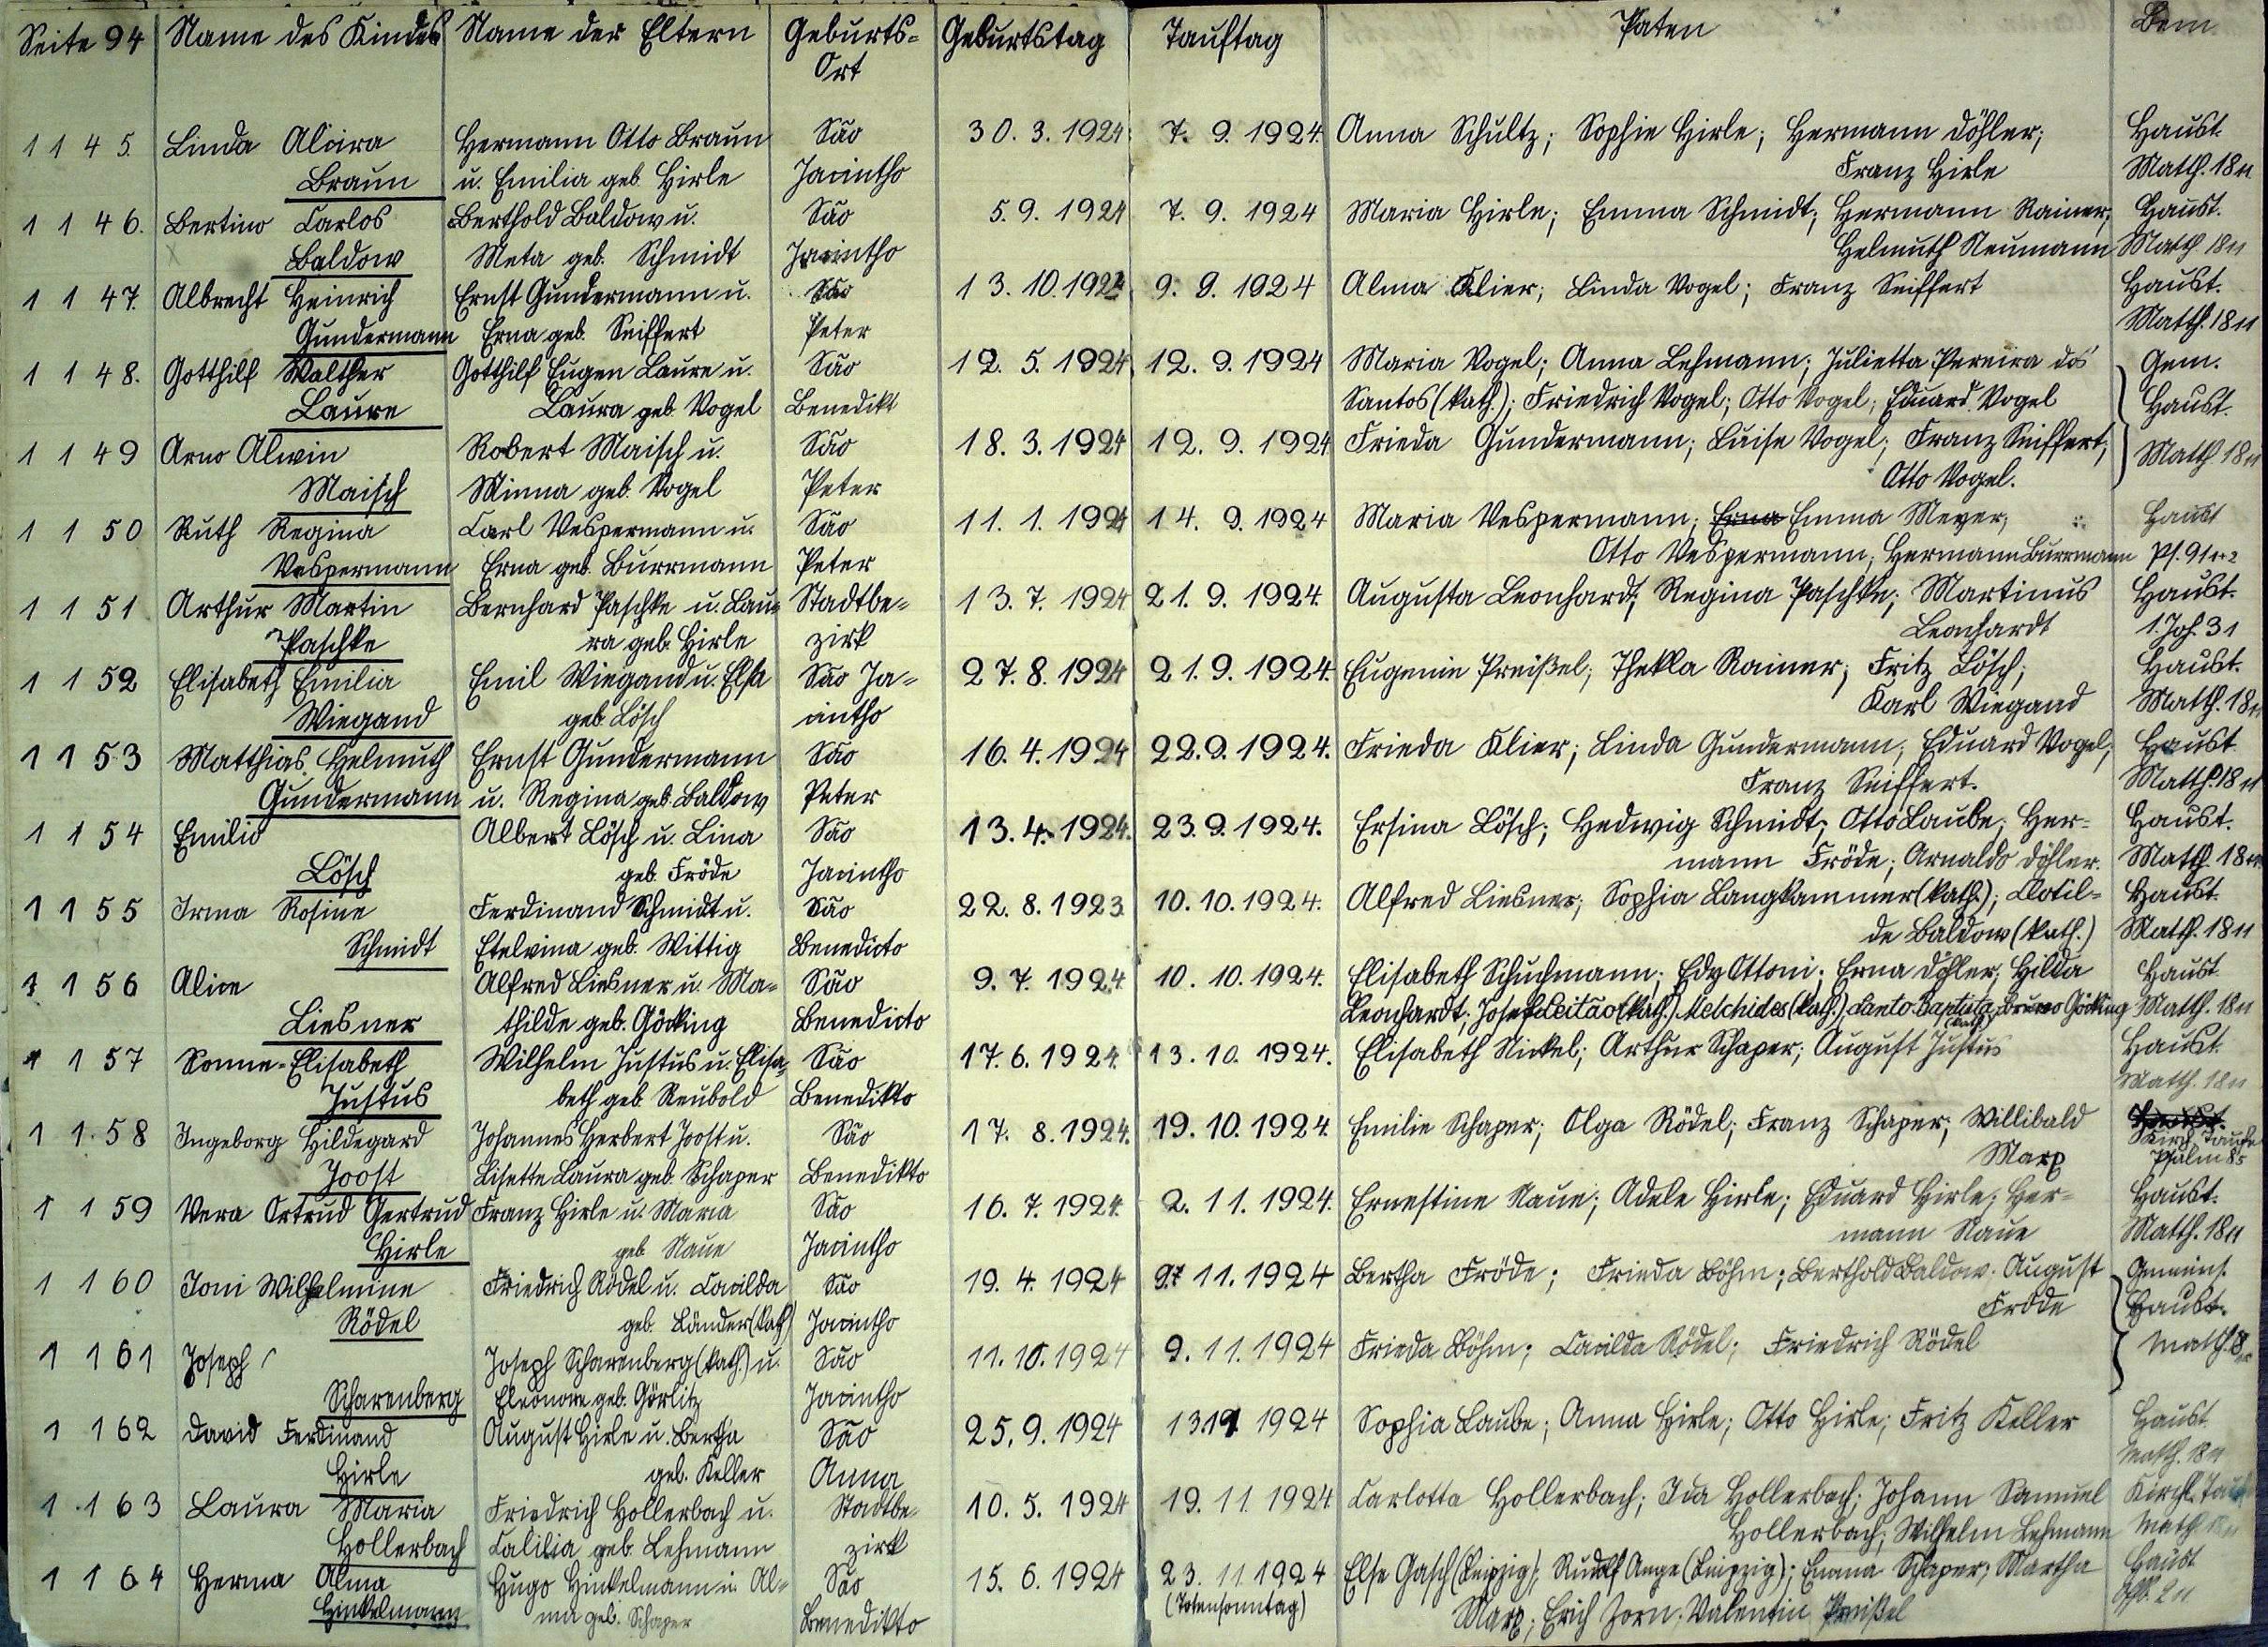 Seite 94 Name des Kindes Name der Eltern Geburts- Geburtstag Tauftag Paten Bem.
Ort
1145. Linda Alcira Hermann Otto Braun São 30. 3. 1924. 7. 9. 1924. Anna Schultz; Sophie Hirle; Hermann Döhler; Haust.
Braun u. Emilia geb. Hirle Jacintho Franz Hirle Matth. 18 11
1146. Bertino Carlos Berthold Baldow u. São 5. 9. 1924 7. 9. 1924 Maria Hirle; Emma Schmidt; Hermann Rainer; Haust.
Baldow Meta geb. Schmidt Jacintho Helmuth Neumann Matth 18 11
1147. Albrecht Heinrich Ernst Gundermann u. São 13. 10. 1924 9. 9. 1924 Alma Klier; Linda Vogel; Franz Seiffert Haust.
Gundermann Erna geb. Seiffert Peter Matth. 18 11
1148. Gotthilf Walther Gotthilf Eugen Laure u. São 12. 5. 1924 12. 9. 1924 Maria Vogel; Anna Lehmann; Julietta Pereira dos Gem.
Laure Laura geb. Vogel Benedikt Santos (kath.); Friedrich Vogel; Otto Vogel; Eduard Vogel Haust.
1149 Arno Alwin Robert Maisch u. São 18. 3. 1924 12. 9. 1924 Frieda Gundermann; Luise Vogel; Franz Seiffert; Matth 18 11
Maisch Minna geb. Vogel Peter Otto Vogel.
1150 Ruth Regina Carl Vespermann u. São 11. 1. 1924 14. 9. 1924 Maria Vespermann; Erna Emma Meyer; Haust
Vespermann Erna geb. Burrmann Peter Otto Vespermann; Hermann Burrmann Ps. 91
1151 Arthur Martin Bernhard Paschke u. Lau- Stadtbe- 13. 7. 1924 21. 9. 1924. Augusta Leonhardt; Regina Paschke; Martinus Haust.
Paschke ra geb. Hirle zirk Leonhardt 1. Joh. 3 1
1152 Elisabeth Emilia Emil Wiegand u. Elsa São Ja- 27. 8. 1924 21. 9. 1924. Eugenie Preißel; Thekla Rainer; Fritz Lösch; Haust.
Wiegand geb Lösch cintho Karl Wiegand Matth. 18 11
1153 Matthias Helmuth Ernst Gundermann São 16. 4. 1924 22. 9. 1924. Frieda Klier; Linda Gundermann; Eduard Vogel; Haust
Gundermann u. Regina geb. Baldow Peter Franz Seiffert. Matth. 18 11
1154 Emilio Albert Lösch u. Lina São 13. 4. 1924. 23. 9. 1924. Ersina Lösch; Hedwig Schmidt; Otto Laube; Her- Haust.
Lösch geb. Fröde Jacintho mann Fröde; Arnaldo Döhler. Matth. 18 11
1155 Irma Rosine Ferdinand Schmidt u. São 22. 8. 1923 10. 10. 1924. Alfred Liesner; Sophia Langkammer (kath.); Clotil- Haust.
Schmidt Etelvina geb. Wittig Benedicto de Baldow (kath.) Matth. 18 11
1156 Alice Alfred Liesner u. Ma- São 9. 7. 1924 10. 10. 1924. Elisabeth Schuchmann; Edy Ottoni; Erna Döhler; Hilda Haust
Liesner thilde geb. Göcking Benedicto Leonhardt; Josef Leitão (kath.) Melchides (kath.) Santo Baptista (kath.) Bruno Göcking Matth. 18 11
1157 Sonne-Elisabeth Wilhelm Justus u. Elisa- São 17. 6. 1924. 13. 10. 1924. Elisabeth Nickel; Arthur Schaper; August Justus Haust.
Justus beth geb. Reubold Benedikto Matth. 18 11
1158 Ingeborg Hildegard Johannes Herbert Joost u. São 17. 8. 1924. 19. 10. 1924. Emilie Schaper; Olga Rödel; Franz Schaper; Willibald Haust. Kirch. Taufe
Joost Lisette Laura geb. Schaper Benedikto Marx Psalm 85
1159 Vera Ortrud Gertrud Franz Hirle u. Maria São 16. 7. 1924. 2. 11. 1924. Ernestine Naue; Adele Hirle; Eduard Hirle; Her- Haust.
Hirle geb Naue Jacintho mann Naue Matth. 18 11
1160 Toni Wilhelmine Friedrich Rödel u. Cacilda São 19. 4. 1924 9. 11. 1924 Bertha Fröde; Frieda Böhm; Berthold Baldow; August Gemeins.
Rödel geb. Länder (kath) Jacintho Fröde Haust.
1161 Joseph Joseph Scharenberg (kath.) u. São 11. 10. 1924 9. 11. 1924 Frieda Böhm; Cacilda Rödel; Friedrich Rödel Matth. 18
Scharenberg Eleonore geb. Görlitz Jacintho
1162 David Ferdinand August Hirle u. Bertha São 25. 9. 1924 13. 11 1924 Sophia Laube; Anna Hirle; Otto Hirle; Fritz Keller Haust
Hirle geb. Keller Anna Matth. 18 11
1163 Laura Maria Friedrich Hollerbach u. Stadtbe- 10. 5. 1924 19. 11. 1924 Carlotta Hollerbach; Ida Hollerbach; Johann Samuel Kirchl. Taufe
Hollerbach Calilia geb. Lehmann zirk Hollerbach; Wilhelm Lehmann Matth
1164 Herma Alma Hugo Hinkelmann u. Al- São 15. 6. 1924 23. 11 1924 Else Gasch (Leipzig); Rudolf Ange (Leipzig); Emma Schaper; Martha Haust
Hinkelmann ma geb. Schaper Benedikto (Totensonntag) Marx; Erich Zorn; Valentin Preißel